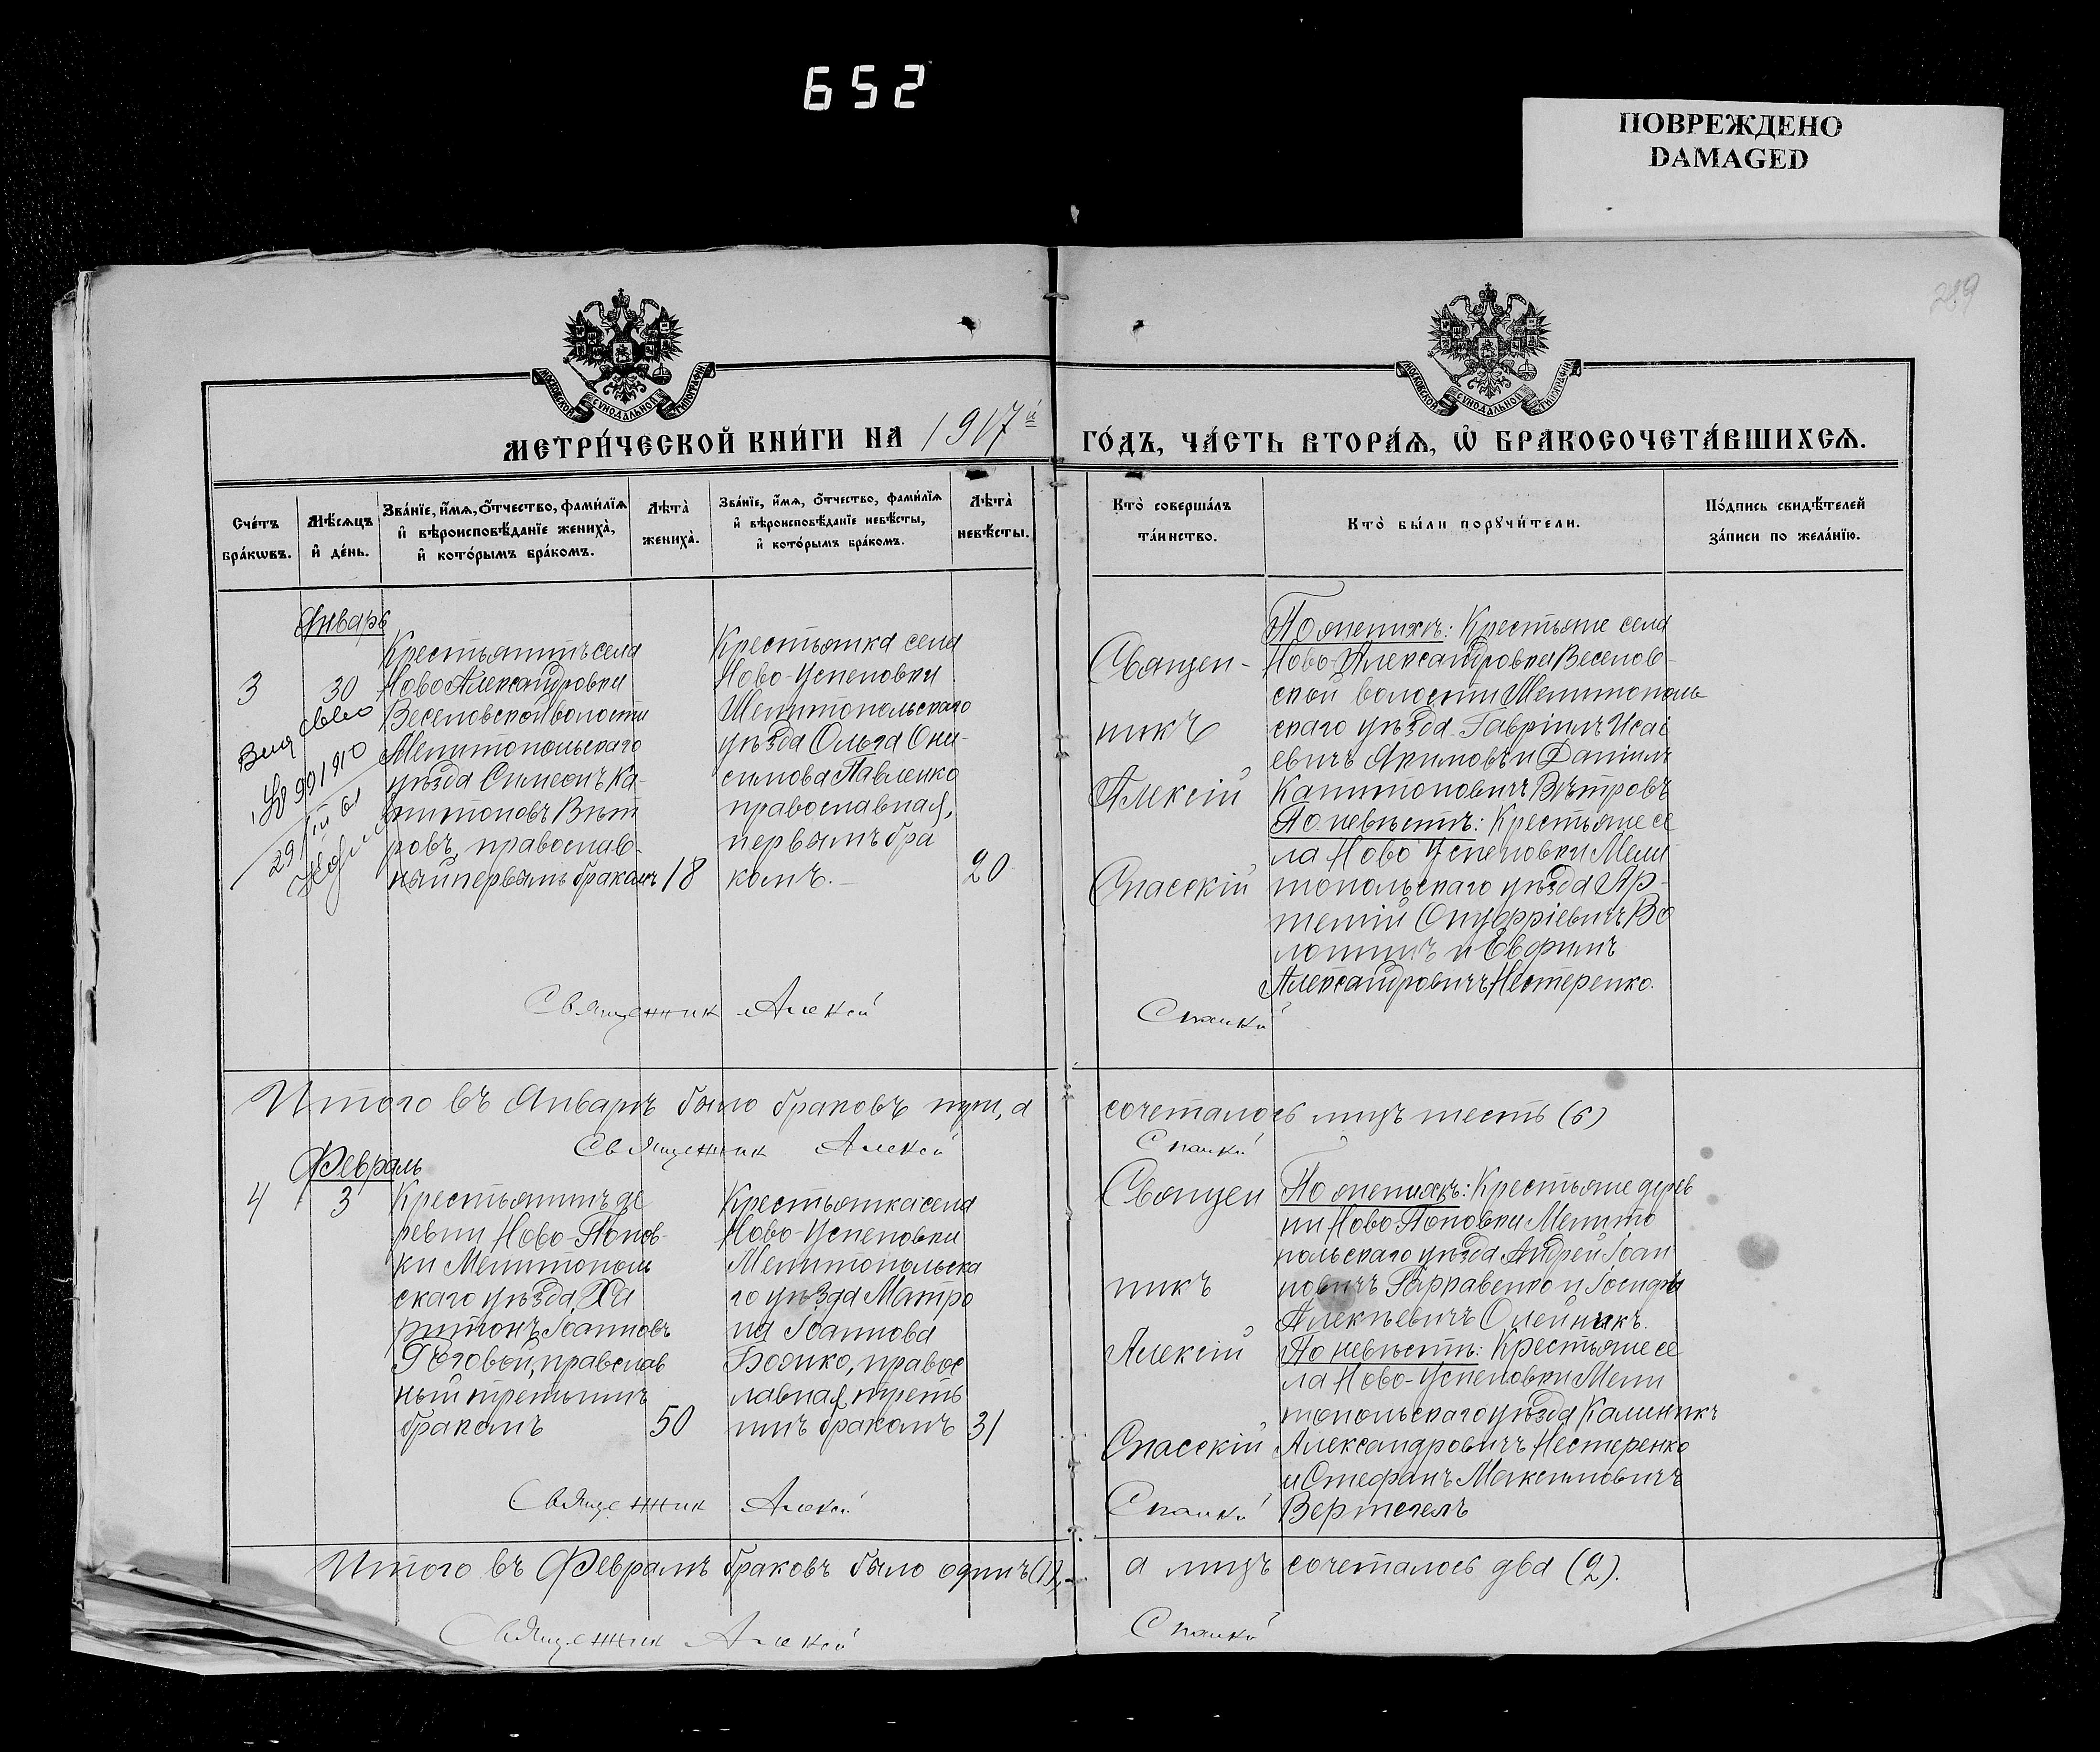 652
ПОВРЕЖДЕНО
DAMAGED
289
МОСКОВСКОЙ СѴНОДАЛЬНОЙ ТИПОГРАФІИ
МОСКОВСКОЙ СѴНОДАЛЬНОЙ ТИПОГРАФІИ
МЕТРИ́ЧЕСКОЙ КНИ́ГИ НА 1917й ГО́ДЪ, ЧА́СТЬ ВТОРА́Ѧ, Ѽ БРАКОСОЧЕТА́ВШИХСѦ.
Сче́тъ
бра́кѡвъ.
Мѣ́сѧцъ
и҆ де́нь.
Зва́нїе, и҆́мѧ, о҆́тчество, фами́лїѧ
и҆ вѣроисповѣ́данїе жениха̀,
и҆ кото́рымъ бра́комъ.
Лѣ́та
жениха̀.
Зва́нїе, и҆́мѧ, о҆́тчество, фами́лїѧ
и҆ вѣроисповѣ́данїе невѣ́сты,
и҆ кото́рымъ бра́комъ.
Лѣ́та
невѣ́сты.
Кто̀ соверша́лъ
та́инство.
Кто̀ бы́ли порꙋчи́тели.
По́дпись свидѣ́телей
за́писи по жела́нїю.
Январь
3
30
Крестьянинъ села
Ново Александровки
Веселовской волости
Мелитопольскаго
уѣзда Симеонъ Ка-
питоновъ Вѣт
ровъ, православ-
ный первымъ бракомъ
18
Крестьянка села
Ново-Успеновки
Мелитопольскаго
уѣзда Ольга Они-
симова Павленко
православная,
первымъ бра
комъ.
20
Священ-
никъ
Алексій
Спасскій
По женихѣ: Крестьяне села
Ново-Александровки Веселов-
ской волости Мелитополь
скаго уѣзда Гавріилъ Исаі
евичъ Якимовъ и Даніилъ
Капитоновичъ Вѣтровъ
По невѣстѣ: Крестьяне се
ла Ново Успеновки Мели
топольскаго уѣзда Ар-
темій Онуфріевичъ Во
лошинъ и Евфимъ
Александровичъ Нестеренко.
Священник Алексій Спасскій
Итого въ Январѣ было браковъ три, а сочеталось лицъ шесть (6)
Священник Алексій Спасскій
Февраль
4
3
Крестьянинъ де
ревни Ново-Попов-
ки Мелитополь
скаго уѣзда Ха
ритонъ Іоанновъ
Роговой, православ
ный третьимъ
бракомъ
50
Крестьянка села
Ново-Успеновки
Мелитопольска
го уѣзда Матро
на Іоаннова
Бояко, правос
лавная треть
имъ бракомъ
31
Священ
никъ
Алексій
Спасскій
По женихѣ: Крестьяне дерев
ни Ново Поповки Мелито
польскаго уѣзда Андрей Іоан
новичъ Гаркавенко и Іосифъ
Алексѣевичъ Олейникъ.
По невѣстѣ: Крестьяне се
ла Ново-Успеновки Мели
топольскаго уѣзда Калинникъ
Александровичъ Нестеренко
и Стефанъ Максимовичъ
Вертегелъ
Священник Алексій Спасскій
Итого въ Февралѣ браковъ было одинъ (1), а лицъ сочеталось два (2).
Священник Алексій Спасскій